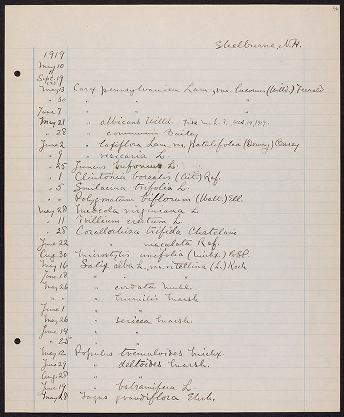 Shelburne, N.H.
1919
May 10
Sept. 19
May 3 Carex pennsylvanica Lam., var. lucorum (Willd.) Fernald
" 30 " " "
June 7 " " "
May 21 " albicans Willd.
" 28 " communis Bailey
June 2 " laxiflora Lam. var. patulifolia (Dewey) Carey
" 9 " vesicaria L.
" 25 Juncus bufonius L.
" 1 Clintonia borealis (Ait.) Raf.
" 5 Smilacina trifolia L.
" " Polygonatum biflorum (Walt.) Ell.
May 28 Medeola virginiana L.
" 11 Trillium erectum L.
" 28 Corallorhiza trifida Chatelain
June 22 " maculata Raf.
Aug. 30 Microstylis unifolia (Michx.) BSP.
May 16 Salix alba L. var. vitellina (L.) Koch
June 18 " "
May 26 " cordata Muhl.
" " " humilis Marsh.
June 1 " "
May 26 " sericea Marsh.
June 14 " "
" 25 " "
May 12 Populus tremuloides Michx.
June 29 " deltoides Marsh.
Aug. 28 " "
June 19 " balsamifera L.
May 28 Fagus grandifolia Ehrh.